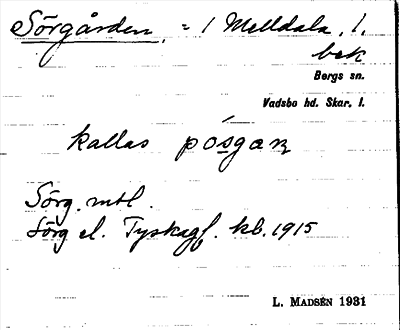 Sörgården, = 1 Melldala, l.
bek
Bergs sn.
Vadsbo hd. Skar. l.
kallas pósgaɳ
Sörg. mtl.
Sörg el. Tyskagf. kb. 1915
L. MADSÉN 1931